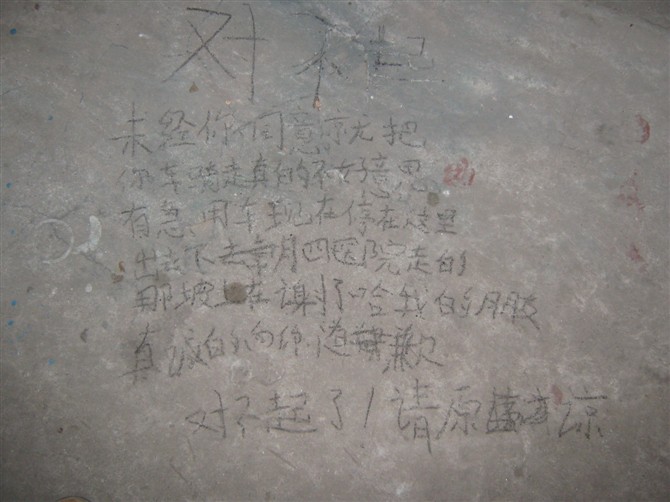 对不起
未经你同意就把
你车骑走真的不好意思
有急用车现在停在这里
出去下去四医院走的
那坡上在谢了哈我的朋友
真诚的向你道歉
对不起了!请原谅